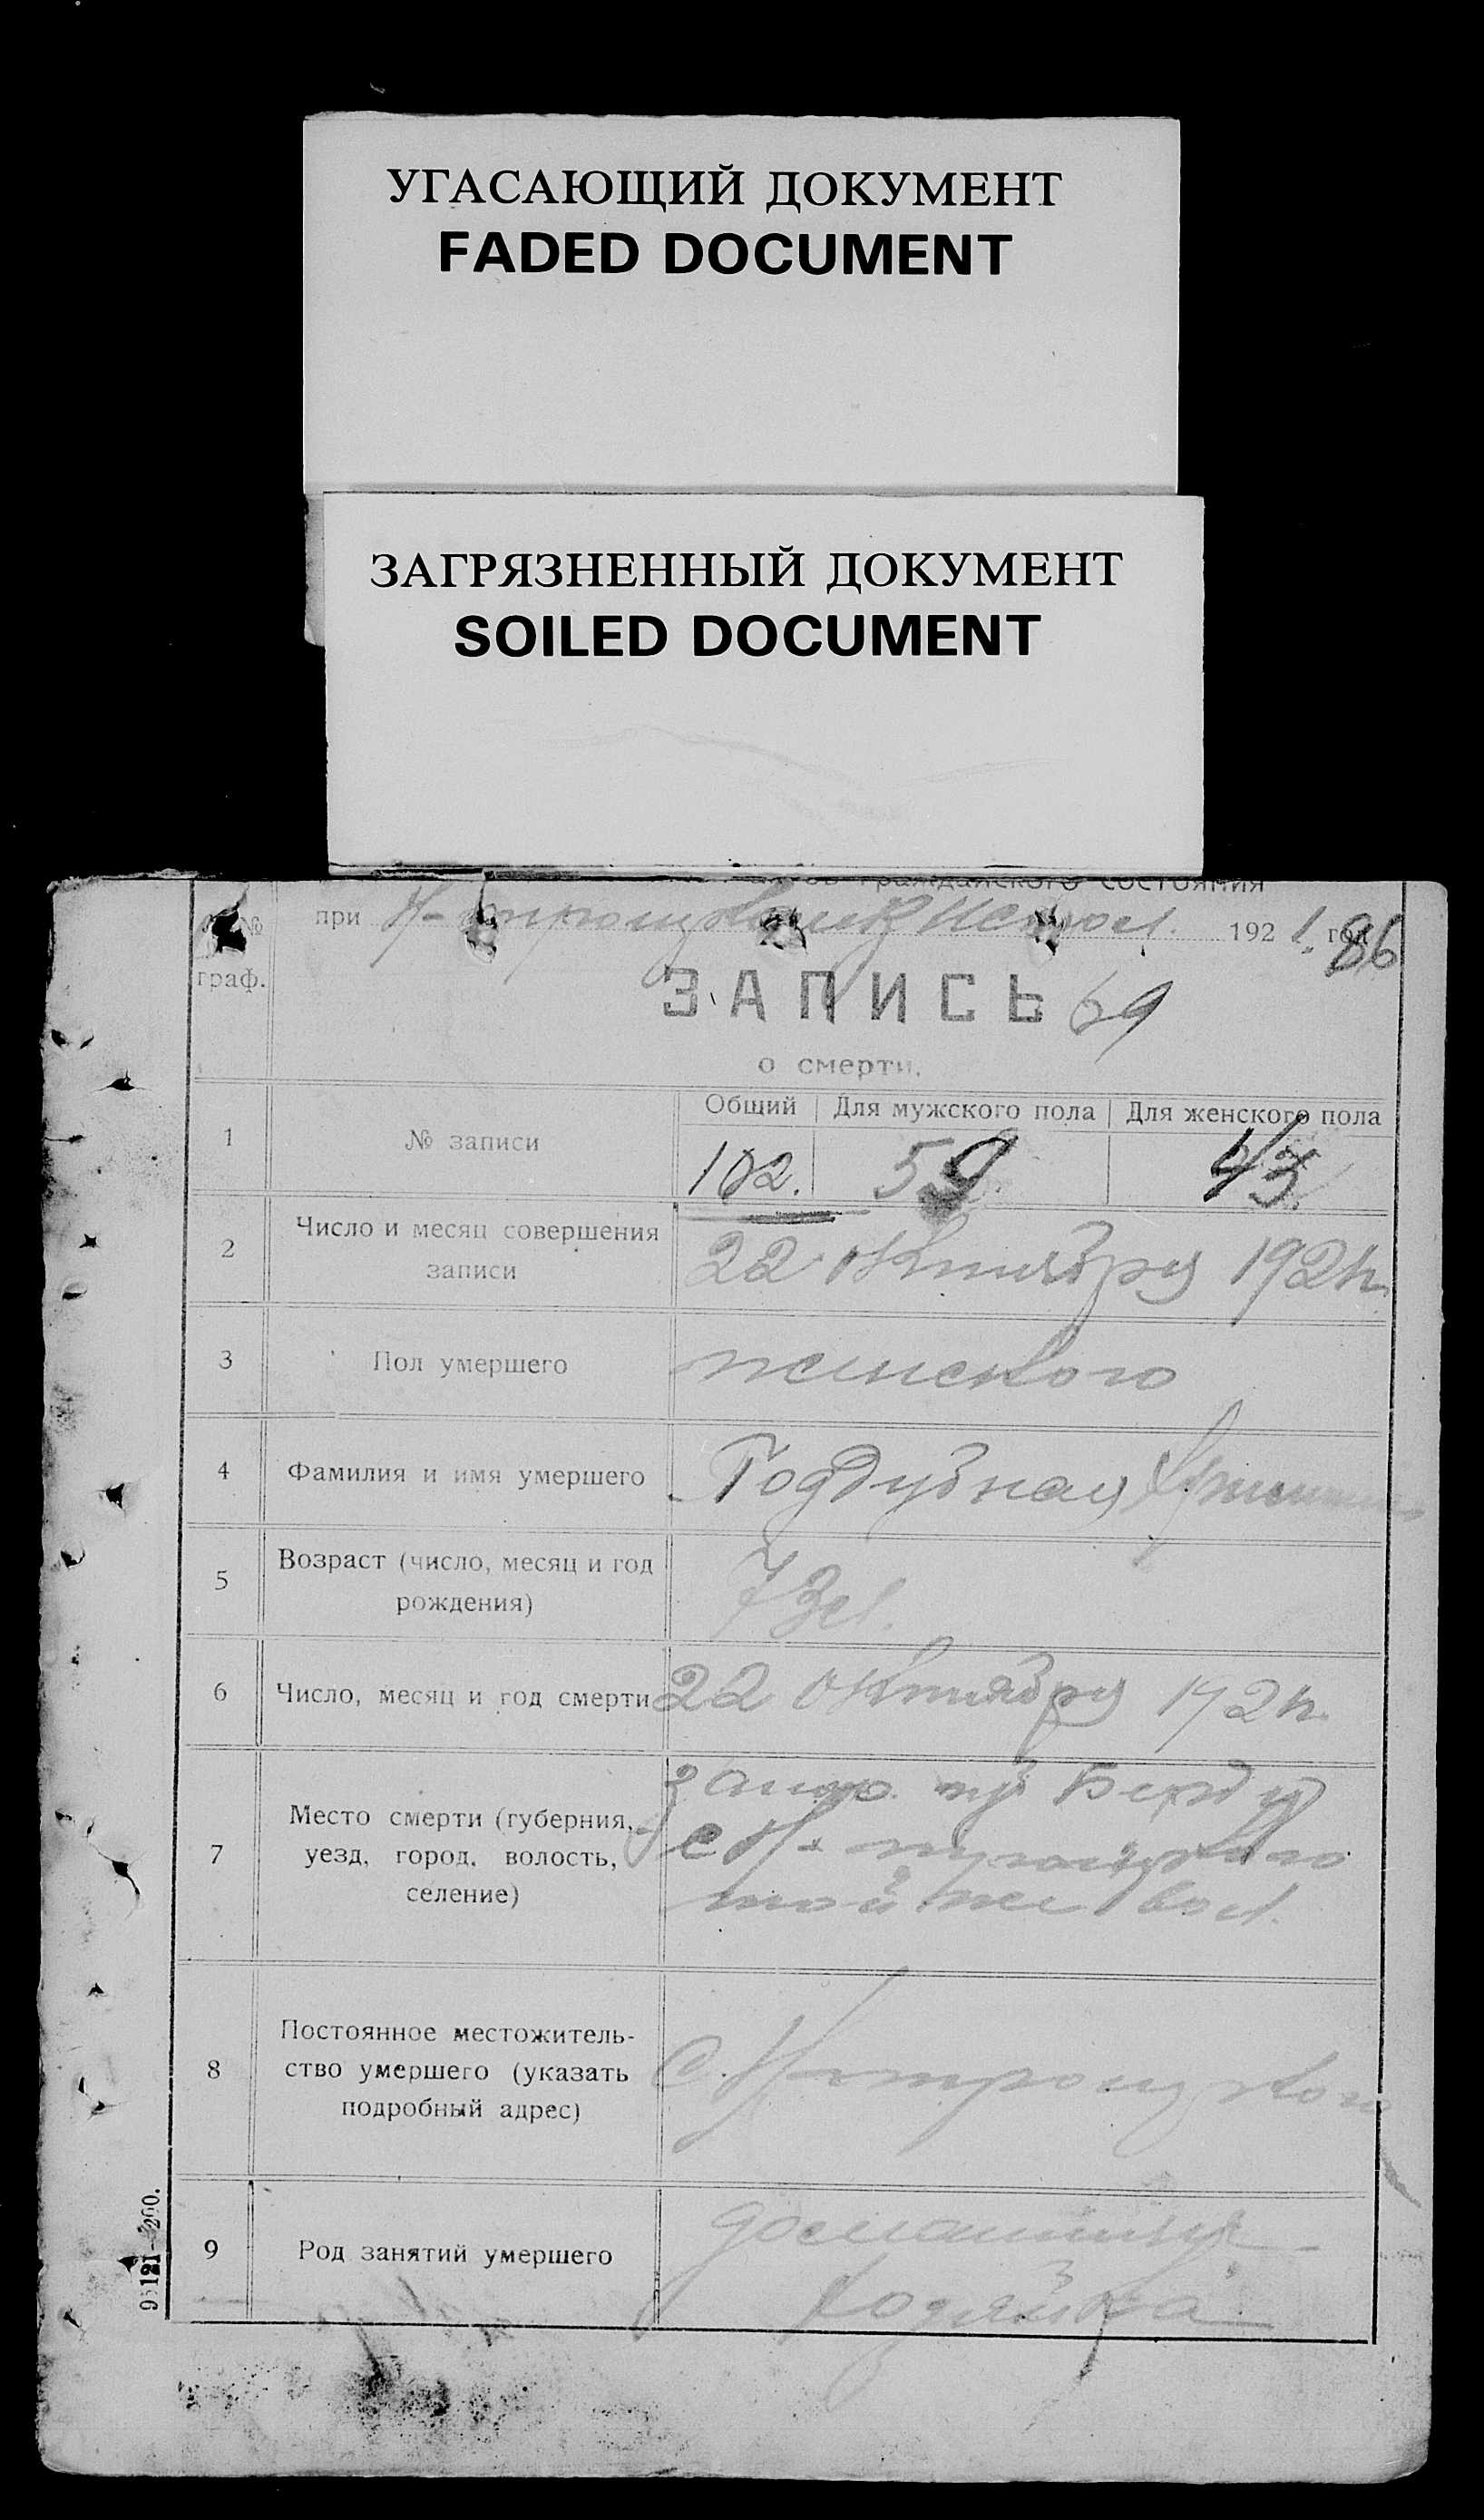 УГАСАЮЩИЙ ДОКУМЕНТ
FADED DOCUMENT
ЗАГРЯЗНЕННЫЙ ДОКУМЕНТ
SOILED DOCUMENT
гражданского состояния
№
граф.
при 192 1. год
86
ЗАПИСЬ 69
о смерти.
1
№ записи
Общий Для мужского пола Для женского пола
102. 59. 43.
2
Число и месяц совершения
записи
22 октября 1921г.
3
Пол умершего
женского
4
Фамилия и имя умершего
5
Возраст (число, месяц и год
рождения)
73 л.
6
Число, месяц и год смерти
22 октября 1921г.
7
Место смерти (губерния,
уезд, город, волость,
селение)
той же вол.
8
Постоянное местожитель-
ство умершего (указать
подробный адрес)
9
Род занятий умершего
домашняя
хозяйка